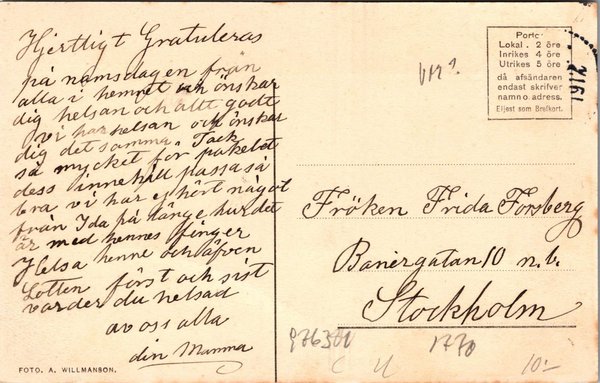 Hjertligt Gratuleras
på namsdagen från
alla i hemmet och önskar
dig helsan och allt godt
vi har helsan och önskar
dig det samma. Tack
så mycket för paketet
dess innehåll passa så
bra vi har ej hört något
från Ida på länge hur det
är med hennes finger
Helsa henne och äfven
Lotten först och sist
varder du helsad
av oss alla
din Mamma
FOTO. A. WILLMANSON.
Porto:
Lokal . 2 öre
Inrikes 4 öre
Utrikes 5 öre
då afsändaren
endast skrifver
namn o. adress.
Eljest som Brefkort.
1912
Fröken Frida Forsberg
Banérgatan 10 n.b.
Stockholm
1770
10:-